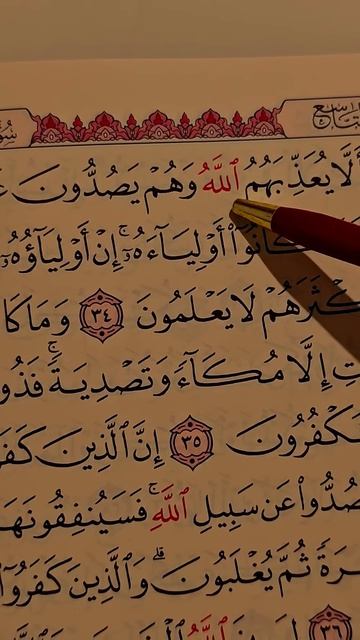 التاسع
لَّا يُعَذِّبَهُمُ ٱللَّهُ وَهُمْ يَصُدُّونَ
كَانُوٓا۟ أَوْلِيَآءَهُۥٓ ۚ إِنْ أَوْلِيَآؤُهُۥٓ
كْثَرَهُمْ لَا يَعْلَمُونَ ٣٤ وَمَا كَا
تِ إِلَّا مُكَآءً وَتَصْدِيَةً ۚ فَذُو
كْفُرُونَ ٣٥ إِنَّ ٱلَّذِينَ كَفَر
صُدُّوا۟ عَن سَبِيلِ ٱللَّهِ ۚ فَسَيُنفِقُونَهَا
رَةً ثُمَّ يُغْلَبُونَ ۗ وَٱلَّذِينَ كَفَرُوٓا۟
٣٦